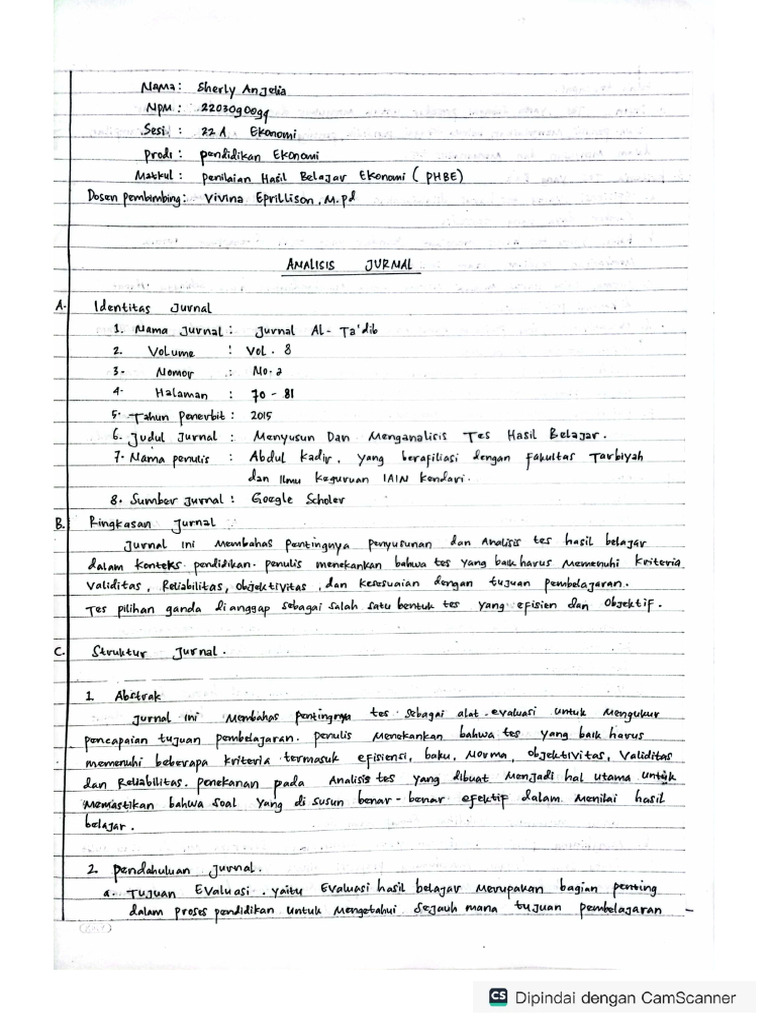 Nama : Sherly Anjelia
NPM : 2203090099
Sesi : 22 A Ekonomi
Prodi : pendidikan Ekonomi
Matkul : penilaian Hasil Belajar Ekonomi ( PHBE)
Dosen pembimbing : Vivina Eprillison, M.pd
ANALISIS JURNAL
A. Identitas Jurnal
1. Nama Jurnal : Jurnal Al - Ta'dib
2. Volume : Vol . 8
3. Nomor : No. 2
4. Halaman : 70 - 81
5. Tahun penerbit : 2015
6. Judul Jurnal : Menyusun Dan Menganalisis Tes Hasil Belajar .
7. Nama penulis : Abdul kadir , yang berafiliasi dengan fakultas Tarbiyah
dan Ilmu keguruan IAIN kendari .
8. Sumber Jurnal : Google Scholer
B. Ringkasan Jurnal
Jurnal ini Membahas pentingnya penyusunan dan Analisis tes hasil belajar
dalam konteks pendidikan . penulis menekankan bahwa tes yang baik harus memenuhi kriteria
Validitas , Reliabilitas , objektivitas , dan kesesuaian dengan tujuan pembelajaran .
Tes pilihan ganda dianggap sebagai salah satu bentuk tes yang efisien dan Objektif .
C. Struktur Jurnal .
1. Abstrak
Jurnal ini Membahas pentingnya tes sebagai alat evaluasi untuk Mengukur
pencapaian tujuan pembelajaran . penulis Menekankan bahwa tes yang baik harus
memenuhi beberapa kriteria termasuk efisiensi , baku , Norma , objektivitas , Validitas
dan Reliabilitas . penekanan pada Analisis tes yang dibuat Menjadi hal utama untuk
Memastikan bahwa soal yang di susun benar - benar efektif dalam Menilai hasil
belajar .
2. pendahuluan jurnal .
a. Tujuan Evaluasi . yaitu Evaluasi hasil belajar Merupakan bagian penting
dalam proses pendidikan untuk Mengetahui sejauh mana tujuan pembelajaran -
CS Dipindai dengan CamScanner